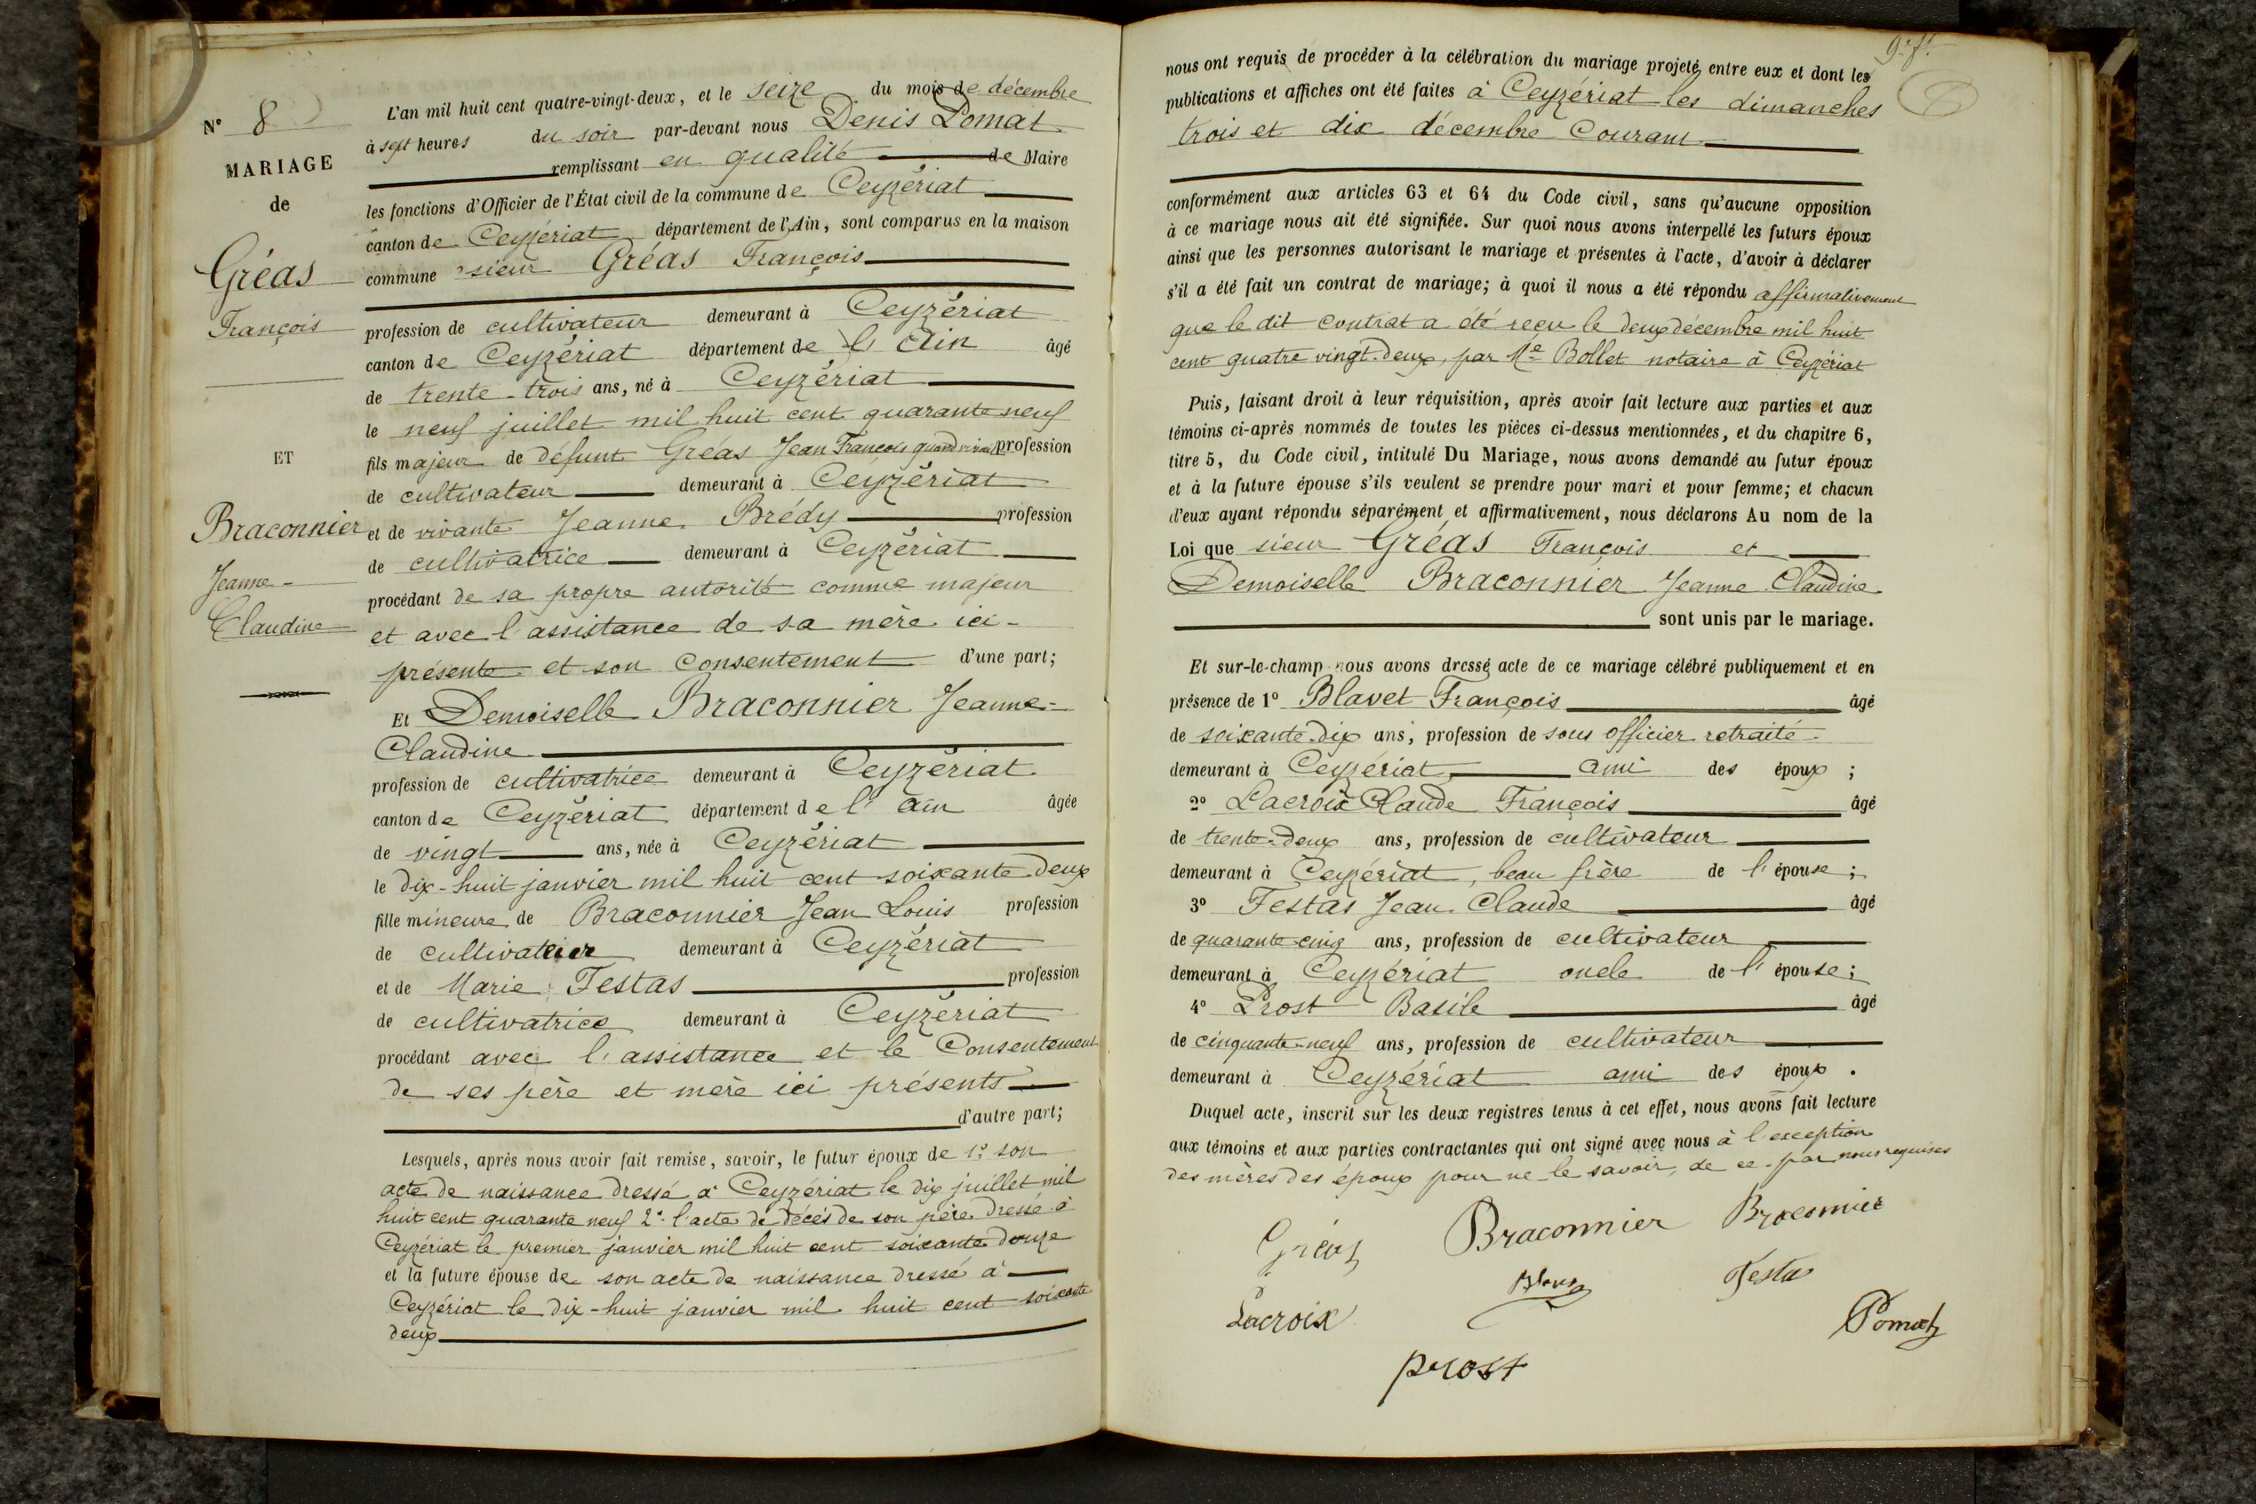 N° 8
MARIAGE
de
Gréas
François
ET
Braconnier
Jeanne-
Claudine
L'an mil huit cent quatre-vingt-deux, et le seize du mois de décembre
à sept heures du soir par-devant nous Denis Pomat
remplissant en qualité de Maire
les fonctions d'Officier de l'État civil de la commune de Ceyzériat
canton de Ceyzériat département de l'Ain, sont comparus en la maison
commune sieur Gréas François
profession de cultivateur demeurant à Ceyzériat
canton de Ceyzériat département de l'Ain âgé
de trente-trois ans, né à Ceyzériat
le neuf juillet mil huit cent quarante neuf
fils majeur de défunt Gréas Jean François quand vivait profession
de cultivateur demeurant à Ceyzériat
et de vivante Jeanne Brédy profession
de cultivatrice demeurant à Ceyzériat
procédant de sa propre autorité comme majeur
et avec l'assistance de sa mère ici-
présente et son consentement d'une part;
Et Demoiselle Braconnier Jeanne-
Claudine
profession de cultivatrice demeurant à Ceyzériat
canton de Ceyzériat département de l'Ain âgée
de vingt ans, née à Ceyzériat
le dix-huit janvier mil huit cent soixante deux
fille mineure de Braconnier Jean Louis profession
de cultivateur demeurant à Ceyzériat
et de Marie Festas profession
de cultivatrice demeurant à Ceyzériat
procédant avec l'assistance et le Consentement
de ses père et mère ici présents
d'autre part;
Lesquels, après nous avoir fait remise, savoir, le futur époux de 1° son
acte de naissance dressé à Ceyzériat le dix juillet mil
huit cent quarante neuf 2° l'acte de décès de son père dressé à
Ceyzériat le premier janvier mil huit cent soixante douze
et la future épouse de son acte de naissance dressé à
Ceyzériat le dix-huit janvier mil huit cent soixante
deux
9e ft.
nous ont requis de procéder à la célébration du mariage projeté entre eux et dont les
publications et affiches ont été faites à Ceyzériat les dimanches
trois et dix décembre Courant
conformément aux articles 63 et 64 du Code civil, sans qu'aucune opposition
à ce mariage nous ait été signifiée. Sur quoi nous avons interpellé les futurs époux
ainsi que les personnes autorisant le mariage et présentes à l'acte, d'avoir à déclarer
s'il a été fait un contrat de mariage; à quoi il nous a été répondu affirmativement
que le dit contrat a été reçu le deux décembre mil huit
cent quatre vingt-deux, par Me Bollet notaire à Ceyzériat
Puis, faisant droit à leur réquisition, après avoir fait lecture aux parties et aux
témoins ci-après nommés de toutes les pièces ci-dessus mentionnées, et du chapitre 6,
titre 5, du Code civil, intitulé Du Mariage, nous avons demandé au futur époux
et à la future épouse s'ils veulent se prendre pour mari et pour femme; et chacun
d'eux ayant répondu séparément et affirmativement, nous déclarons Au nom de la
Loi que sieur Gréas François et
Demoiselle Braconnier Jeanne Claudine
sont unis par le mariage.
Et sur-le-champ nous avons dressé acte de ce mariage célébré publiquement et en
présence de 1° Blavet François âgé
de soixante-dix ans, profession de sous officier retraité
demeurant à Ceyzériat ami des époux ;
2° Lacroix Claude François âgé
de trente-deux ans, profession de cultivateur
demeurant à Ceyzériat, beau frère de l'épouse ;
3° Festas Jean-Claude âgé
de quarante-cinq ans, profession de cultivateur
demeurant à Ceyzériat oncle de l'épouse ;
4° Prost Basile âgé
de cinquante-neuf ans, profession de cultivateur
demeurant à Ceyzériat ami des époux .
Duquel acte, inscrit sur les deux registres tenus à cet effet, nous avons fait lecture
aux témoins et aux parties contractantes qui ont signé avec nous à l'exception
des mères des époux pour ne le savoir, de ce par nous requises
Gréas Braconnier Braconnier
Blavet Festas
Lacroix Pomat
prost